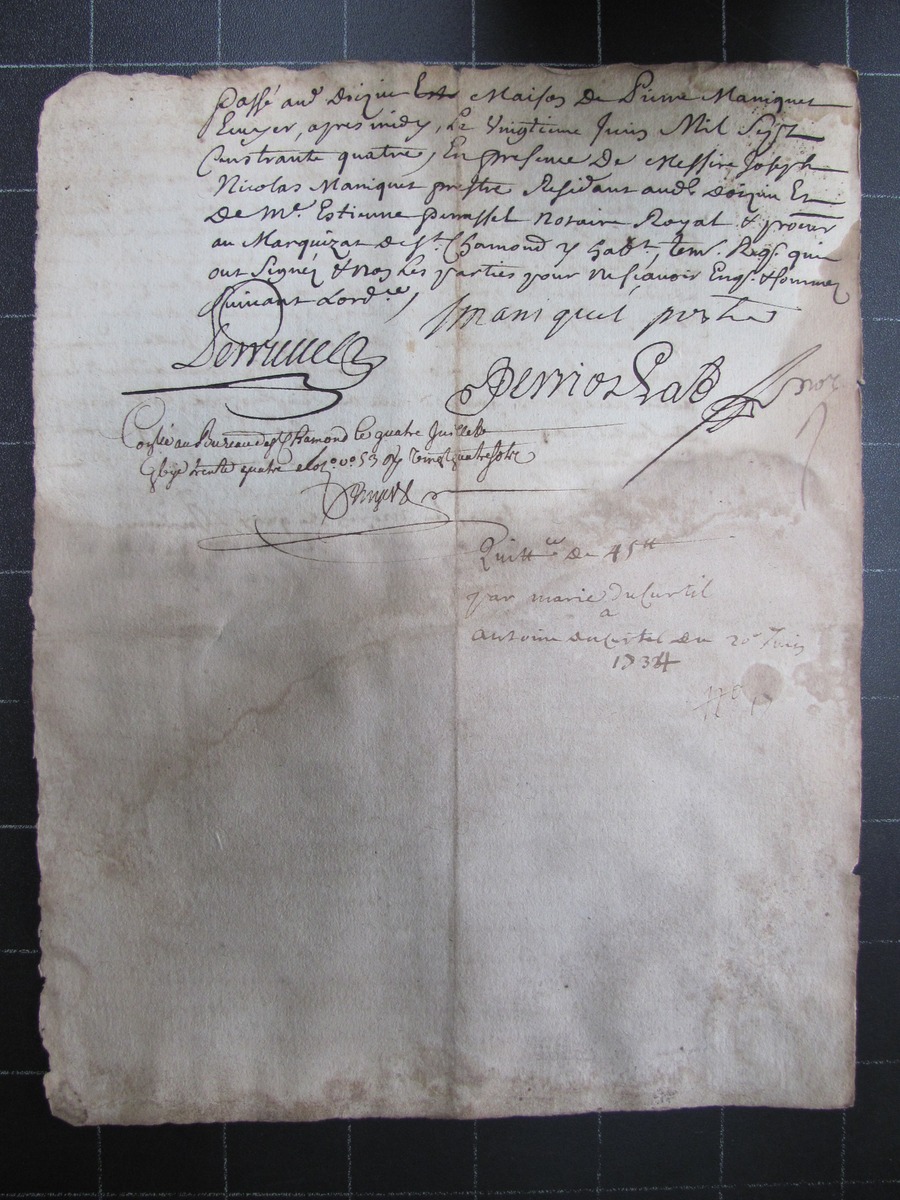 passé aud Doizieu Est Maison de Pierre Maniquet
Ecuyer, apres midy, Le Vingtieme Juin Mil Sept
Cens trante quatre, En presence de Messire Joseph
Nicolas Maniquet prestre Residant aud. Doizieu Et
De Me. Estienne notaire Royal & procur
au Marquizat de St. Chamond y habt., tem. Reqs. qui
ont Signéz & non Les parties pour ne sçavoir Enqs. & sommez
Suivant Lord.ce,
maniquet prestre

au Bureau de St Chamond le quatre Juillet
trente quatre vo 53
Quittce de 45tt
par marie duCurtil
a
antoine ducurtil du 20e Juin
1734